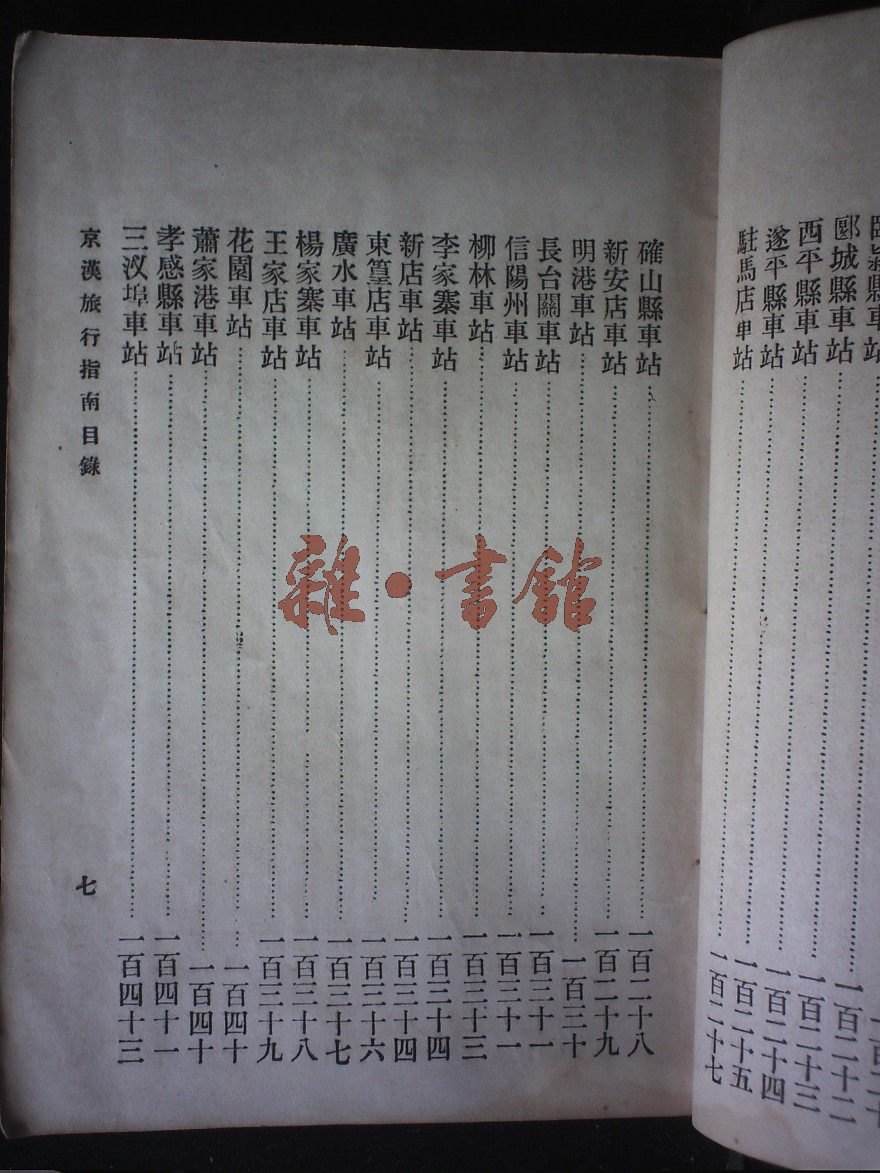 臨潁縣車站……一百二十二
郾城縣車站……一百二十三
西平縣車站……一百二十四
遂平縣車站……一百二十五
駐馬店車站……一百二十七
確山縣車站……一百二十八
新安店車站……一百二十九
明港車站……一百三十
長台關車站……一百三十一
信陽州車站……一百三十一
柳林車站……一百三十三
李家寨車站……一百三十四
新店車站……一百三十四
東篁店車站……一百三十六
廣水車站……一百三十七
楊家寨車站……一百三十八
王家店車站……一百三十九
花園車站……一百四十
蕭家港車站……一百四十
孝感縣車站……一百四十一
三汊埠車站……一百四十三
京漢旅行指南目錄
七
雜·書館